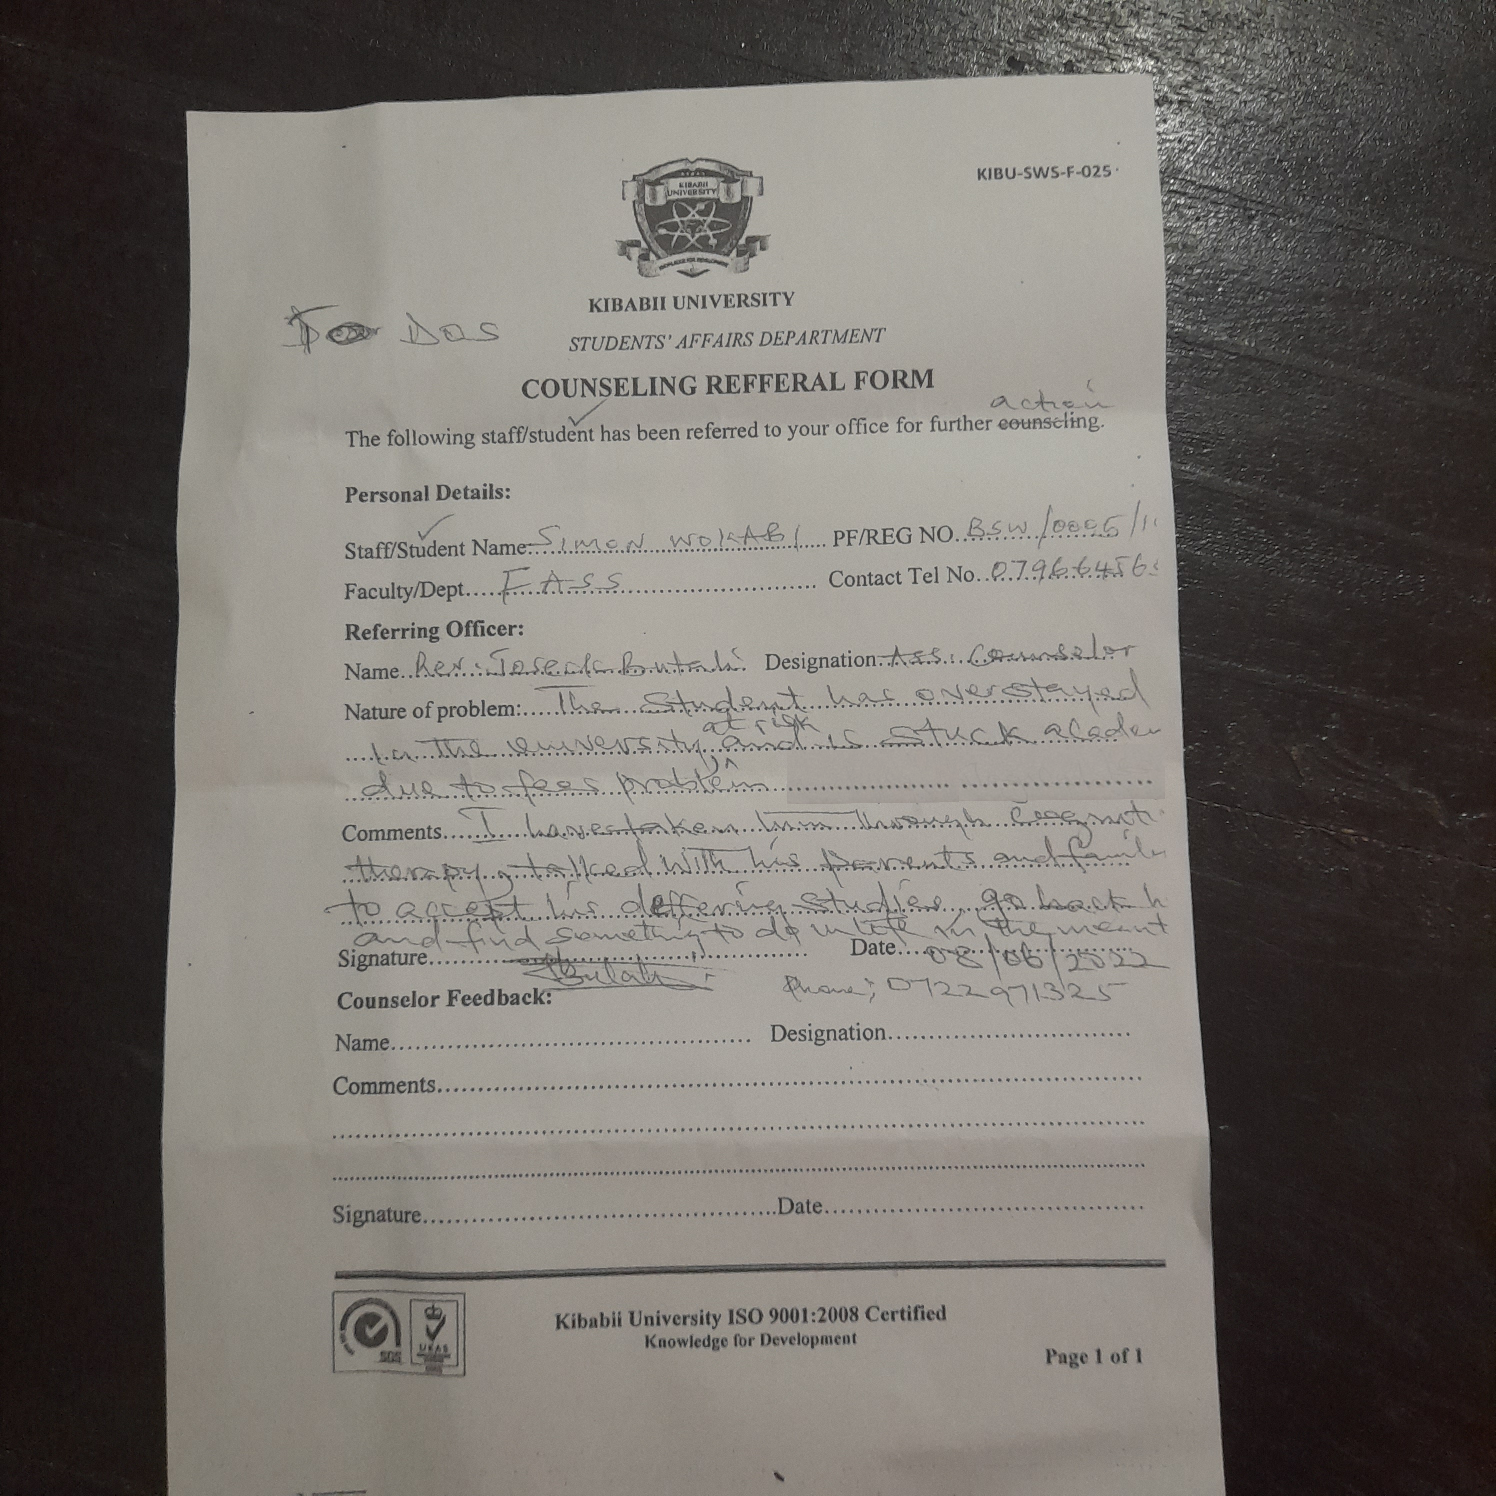 KIBU-SWS-F-025
KIBABII
UNIVERSITY
KIBABII UNIVERSITY
To DOS
STUDENTS' AFFAIRS DEPARTMENT
COUNSELING REFFERAL FORM
action
The following staff/student has been referred to your office for further counseling.
Personal Details:
Staff/Student Name: SIMON WOKABI PF/REG NO. BSW/0005/1
Faculty/Dept FASS Contact Tel No. 079664565
Referring Officer:
Name Rev. Joseph Butali Designation Ass. Counselor
Nature of problem: The student has overstayed
at risk
in the university and is stuck academ
due to fees problem
Comments I have taken him through Cognit
therapy, talked with his parents and famil
to accept his deffering studies, go back h
and find something to do while in the meant
Signature Butali Date 08/06/2022
Phone; 0722971325
Counselor Feedback:
Name Designation
Comments
Signature Date
SGS
UKAS
Kibabii University ISO 9001:2008 Certified
Knowledge for Development
Page 1 of 1